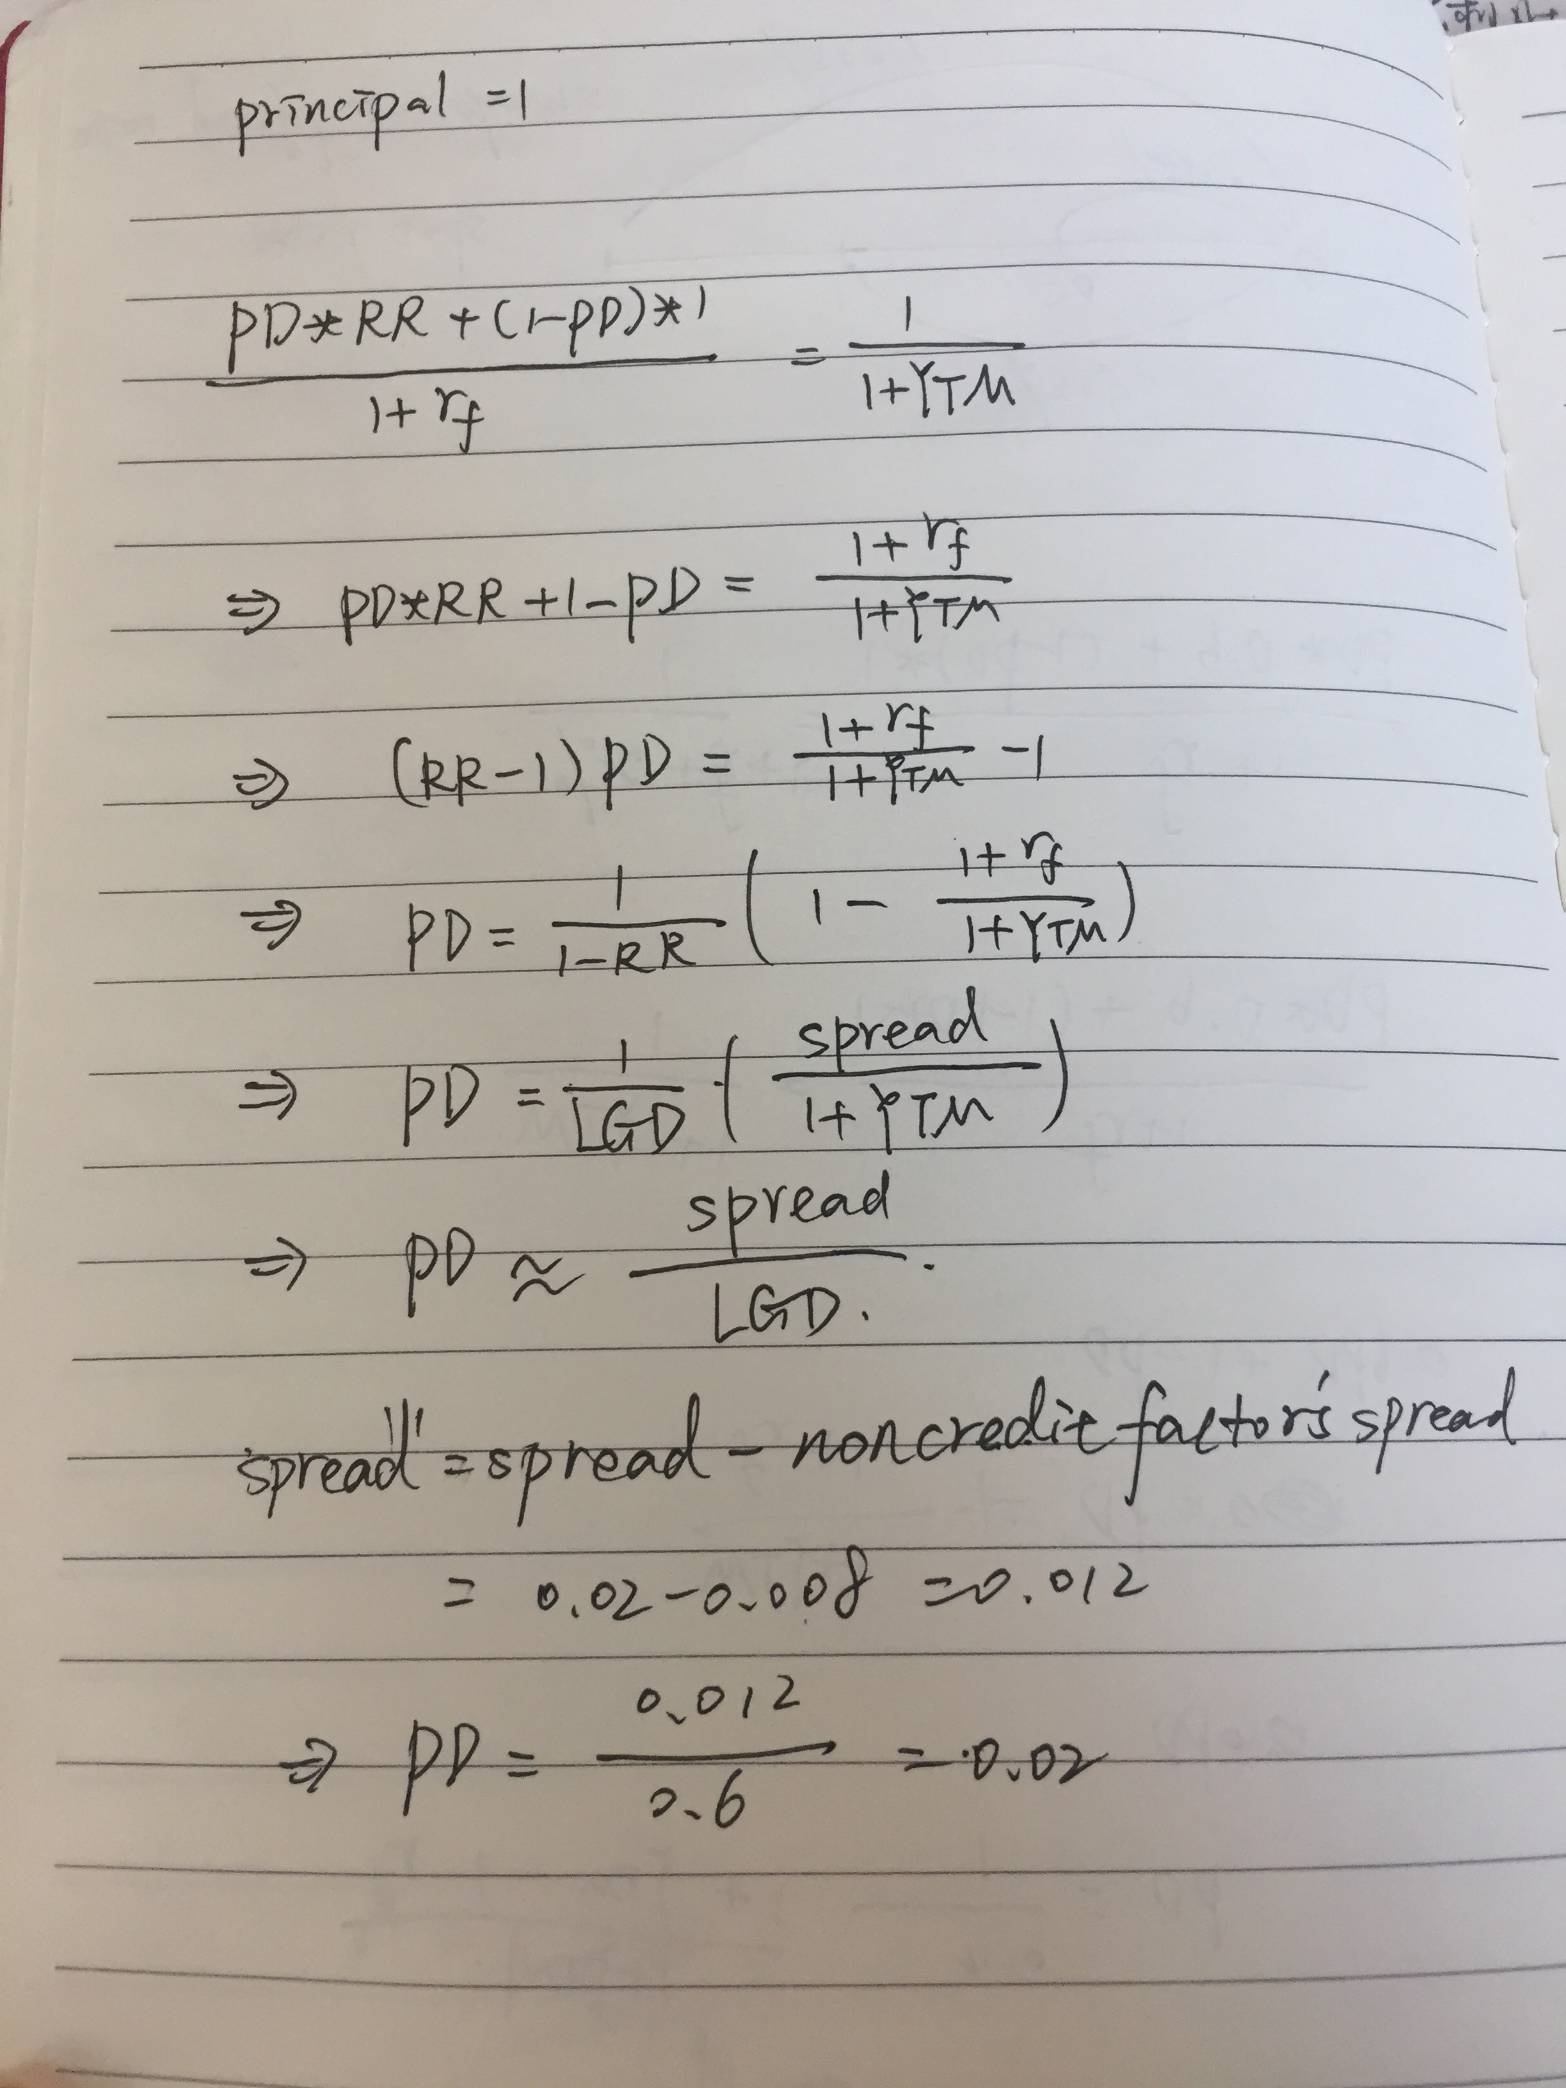 principal = 1
PD*RR + (1-PD)*1 / 1+rf = 1 / 1+YTM
⇒ PD*RR+1-PD = 1+rf / 1+YTM
⇒ (RR-1) PD = 1+rf / 1+YTM -1
⇒ PD = 1 / 1-RR ( 1 - 1+rf / 1+YTM )
⇒ PD = 1 / LGD · ( spread / 1+YTM )
⇒ PD ≈ spread / LGD.
spread''' = spread - noncredit factor's spread
= 0.02 - 0.008 = 0.012
⇒ PD = 0.012 / 0.6 = 0.02